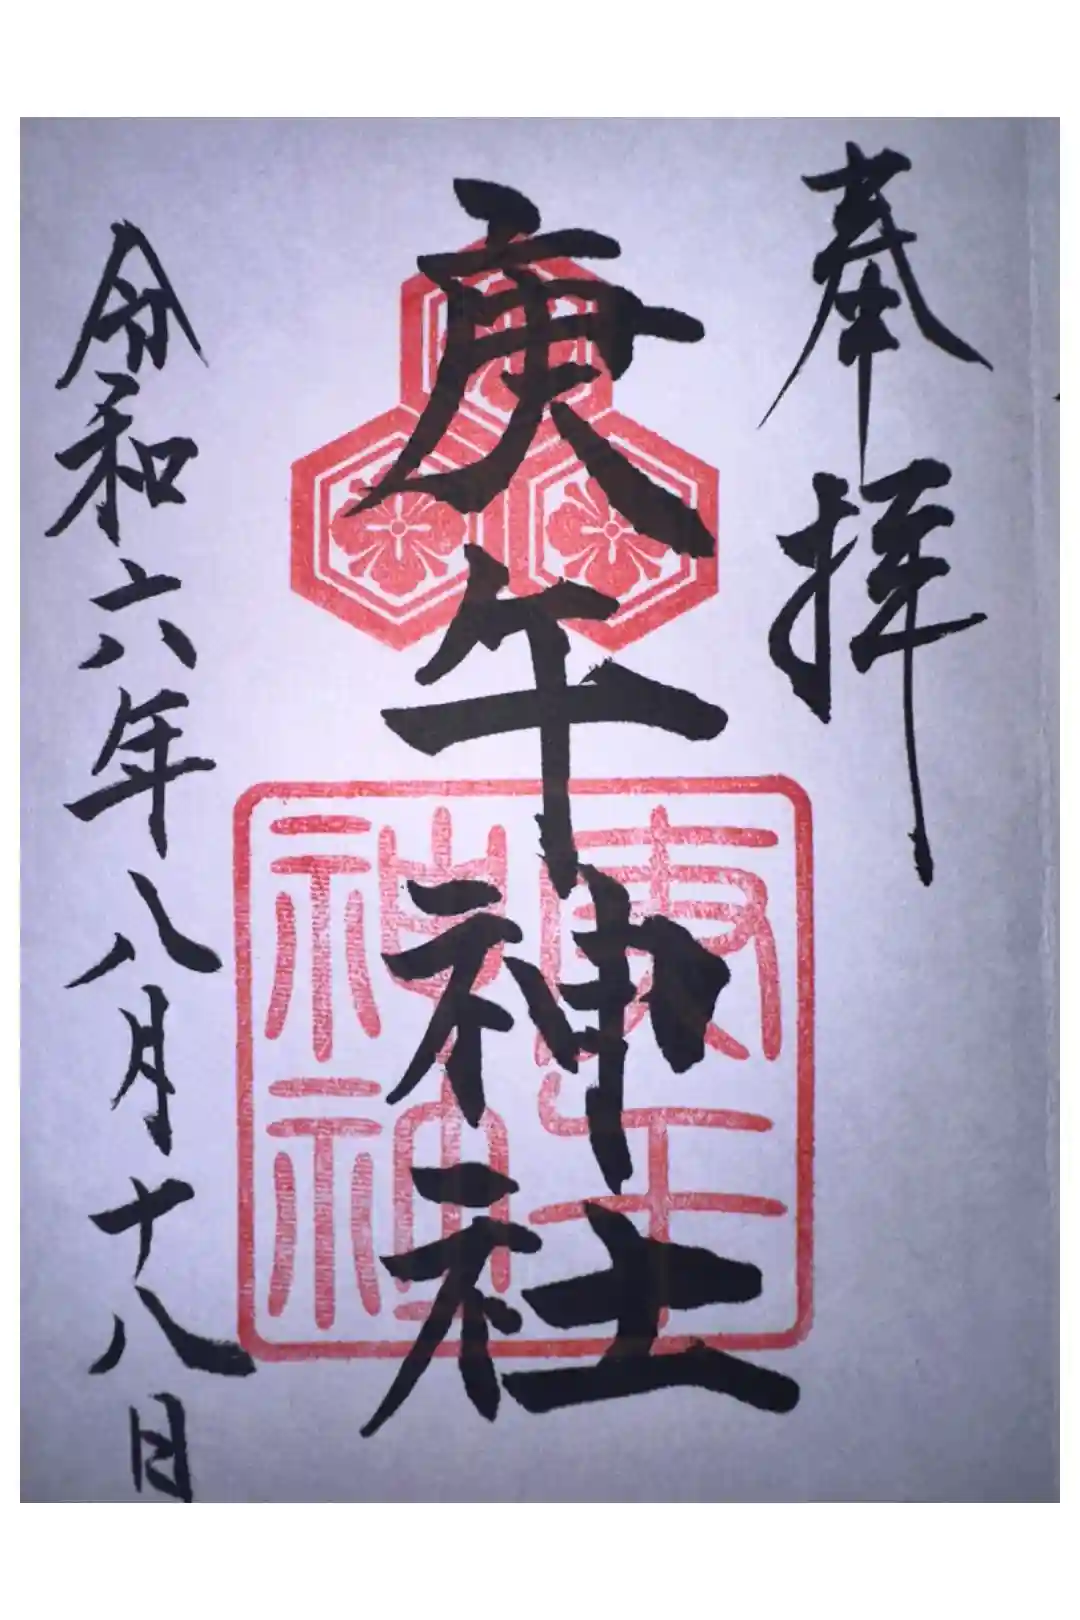 奉拝
庚午神社
庚午神社
令和六年八月十八日